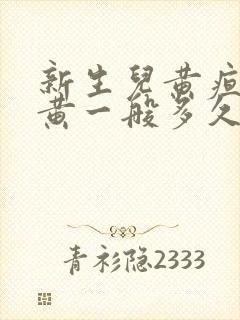 新生兒黃疸
黃一般多久
青衫隐2333